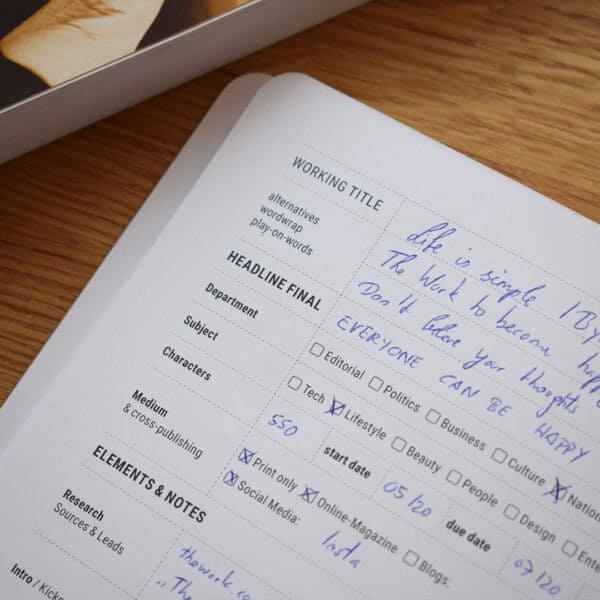 WORKING TITLE
alternatives
wordwrap
play-on-words
Life is simple / By
The Work to become happ
Don't believe your thoughts
HEADLINE FINAL
EVERYONE CAN BE HAPPY
Department
Editorial Politics Business Culture Nation
Subject
Tech Lifestyle Beauty People Design Ente
Characters
550 start date 05/20 due date 07/20
Medium
& cross-publishing
Print only Online-Magazine Blogs:
Social Media: Insta
ELEMENTS & NOTES
Research
Sources & Leads
thework.co
"The
Intro / Kicke